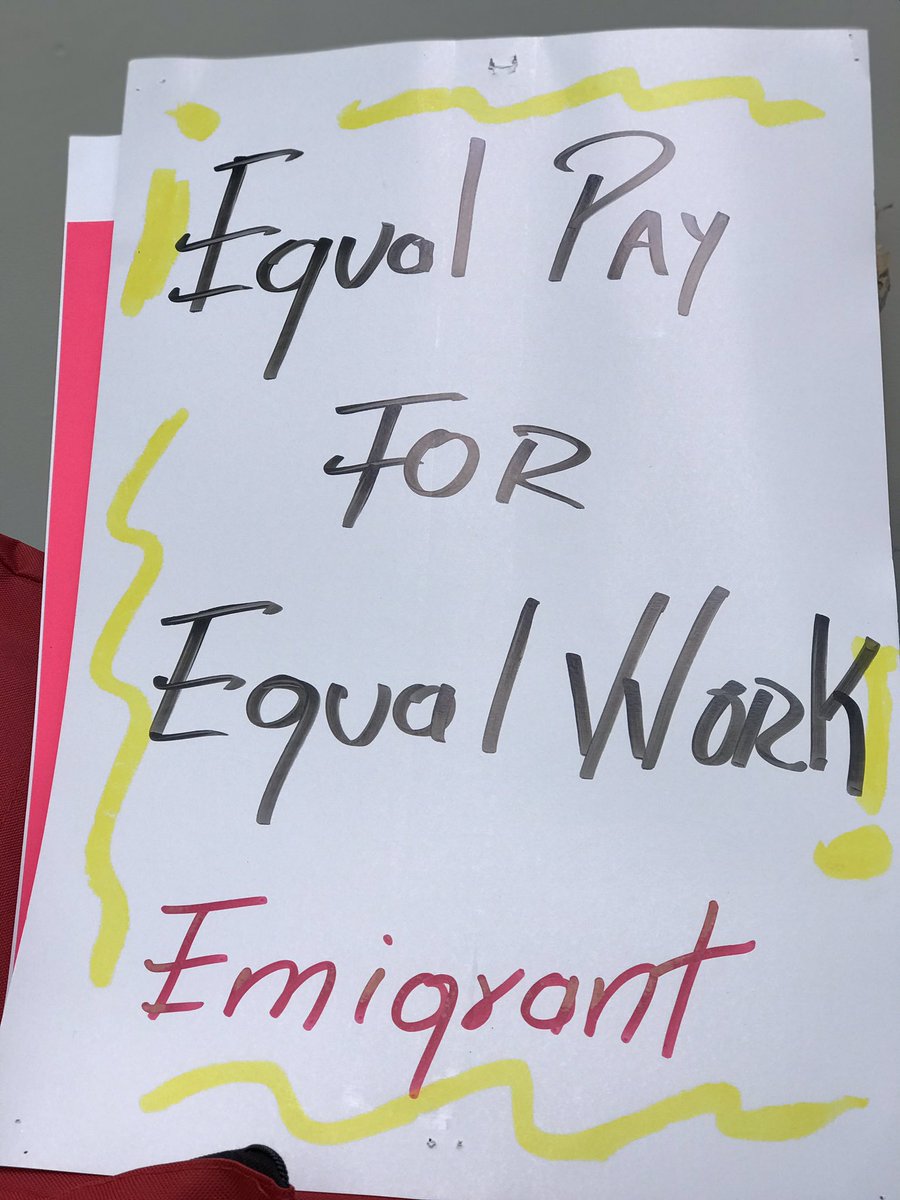 ¡Equal Pay
For
Equal Work!
Emigrant